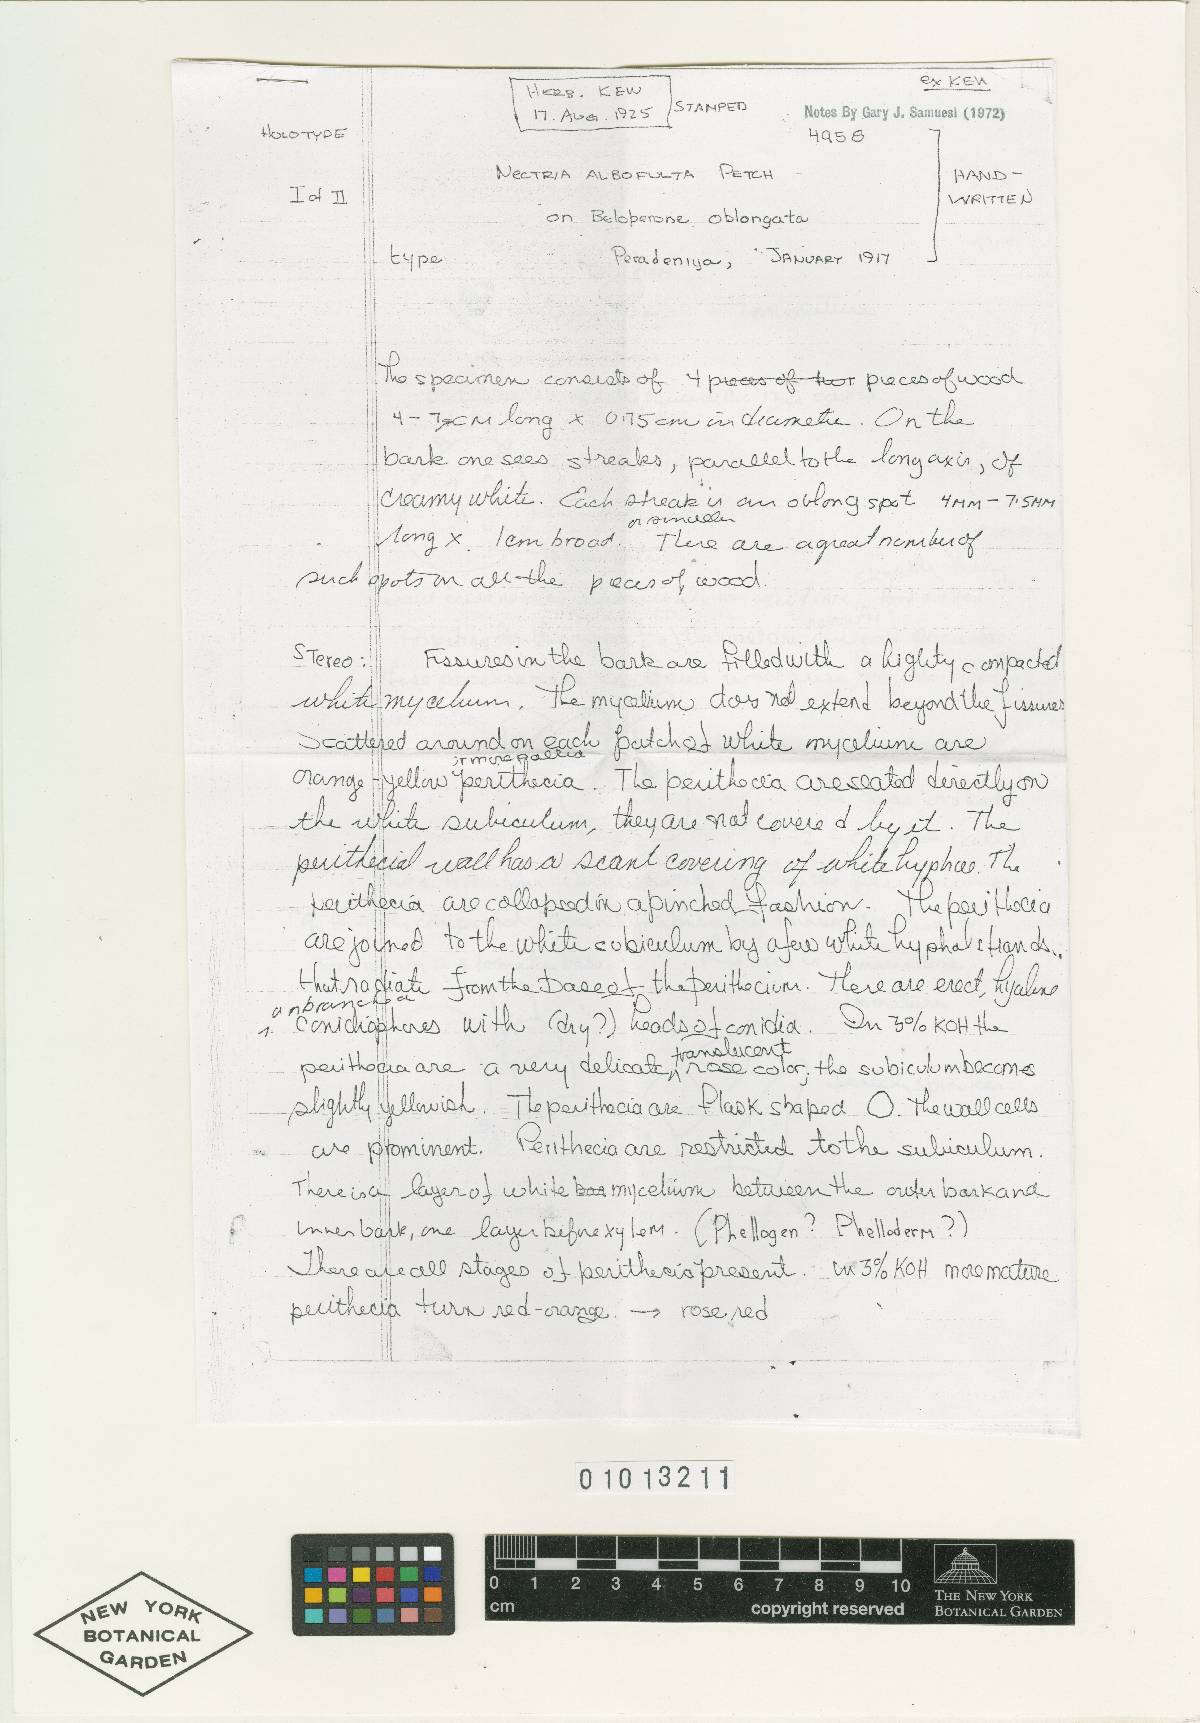 ex KEW
HERB. KEW
17. AUG. 1925
STAMPED
Notes By Gary J. Samuesl (1972)
HOLOTYPE
4956
I of II
NECTRIA ALBOFULTA PETCH
HAND-
WRITTEN
on Beloperone oblongata
type Peradeniya, JANUARY 1917
The specimen consists of 4 pieces of pieces of wood
4-7cm long x 0.75cm in diameter. On the
bark one sees streaks, parallel to the long axis, of
creamy white. Each streak is an oblong spot 4MM-7.5MM
long x 1cm broad. There are a great number of
or smaller
such spots on all the pieces of wood.
Stereo: Fissures in the bark are filled with a highly compacted
white mycelium. The mycelium does not extend beyond the fissures
Scattered around on each patch of white mycelium are
orange-yellow perithecia. The perithecia are seated directly on
the white subiculum, they are not covered by it. The
perithecial wall has a scant covering of white hyphae. The
perithecia are collapsed in a pinched fashion. The perithecia
are joined to the white subiculum by a few white hyphal strands
that radiate from the base of the perithecium. There are erect, hyaline
unbranched
conidiophores with (dry?) heads of conidia. In 3% KOH the
translucent
perithecia are a very delicate, rose color, the subiculum becomes
slightly yellowish. The perithecia are flask shaped O. The wall cells
are prominent. Perithecia are restricted to the subiculum.
There is a layer of white bar mycelium between the outer bark and
inner bark, one layer before xylem. (Phellogen? Phelloderm?)
There are all stages of perithecia present. in 3% KOH more mature
perithecia turn red-orange. → rose red
01013211
NEW YORK
BOTANICAL
GARDEN
0 1 2 3 4 5 6 7 8 9 10
cm
copyright reserved
THE NEW YORK
BOTANICAL GARDEN